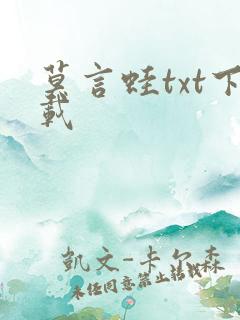 莫言蛙txt下
载
凱文-卡尔森
未经同意禁止转载